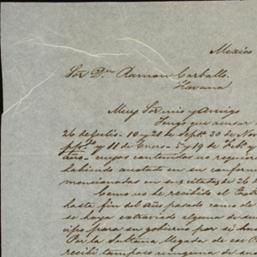 Mexico
Sor Dn Ramon Carballo
Havana
Muy Sor mio y Amigo
Tengo que avisar
26 de Julio - 10 y 28 de Sept 30 de Nov
y 11 de Enero - 5 y 19 de Feb y
cuyos contenidos no requiere
habiendo anotado en su conform
mencionadas en su
Como no he recibido el
hasta fin del año pasado como de
se haya extraviado alguna de
cipo para su gobierno por si hu
Por la llegada de
recibi tampoco ninguna de